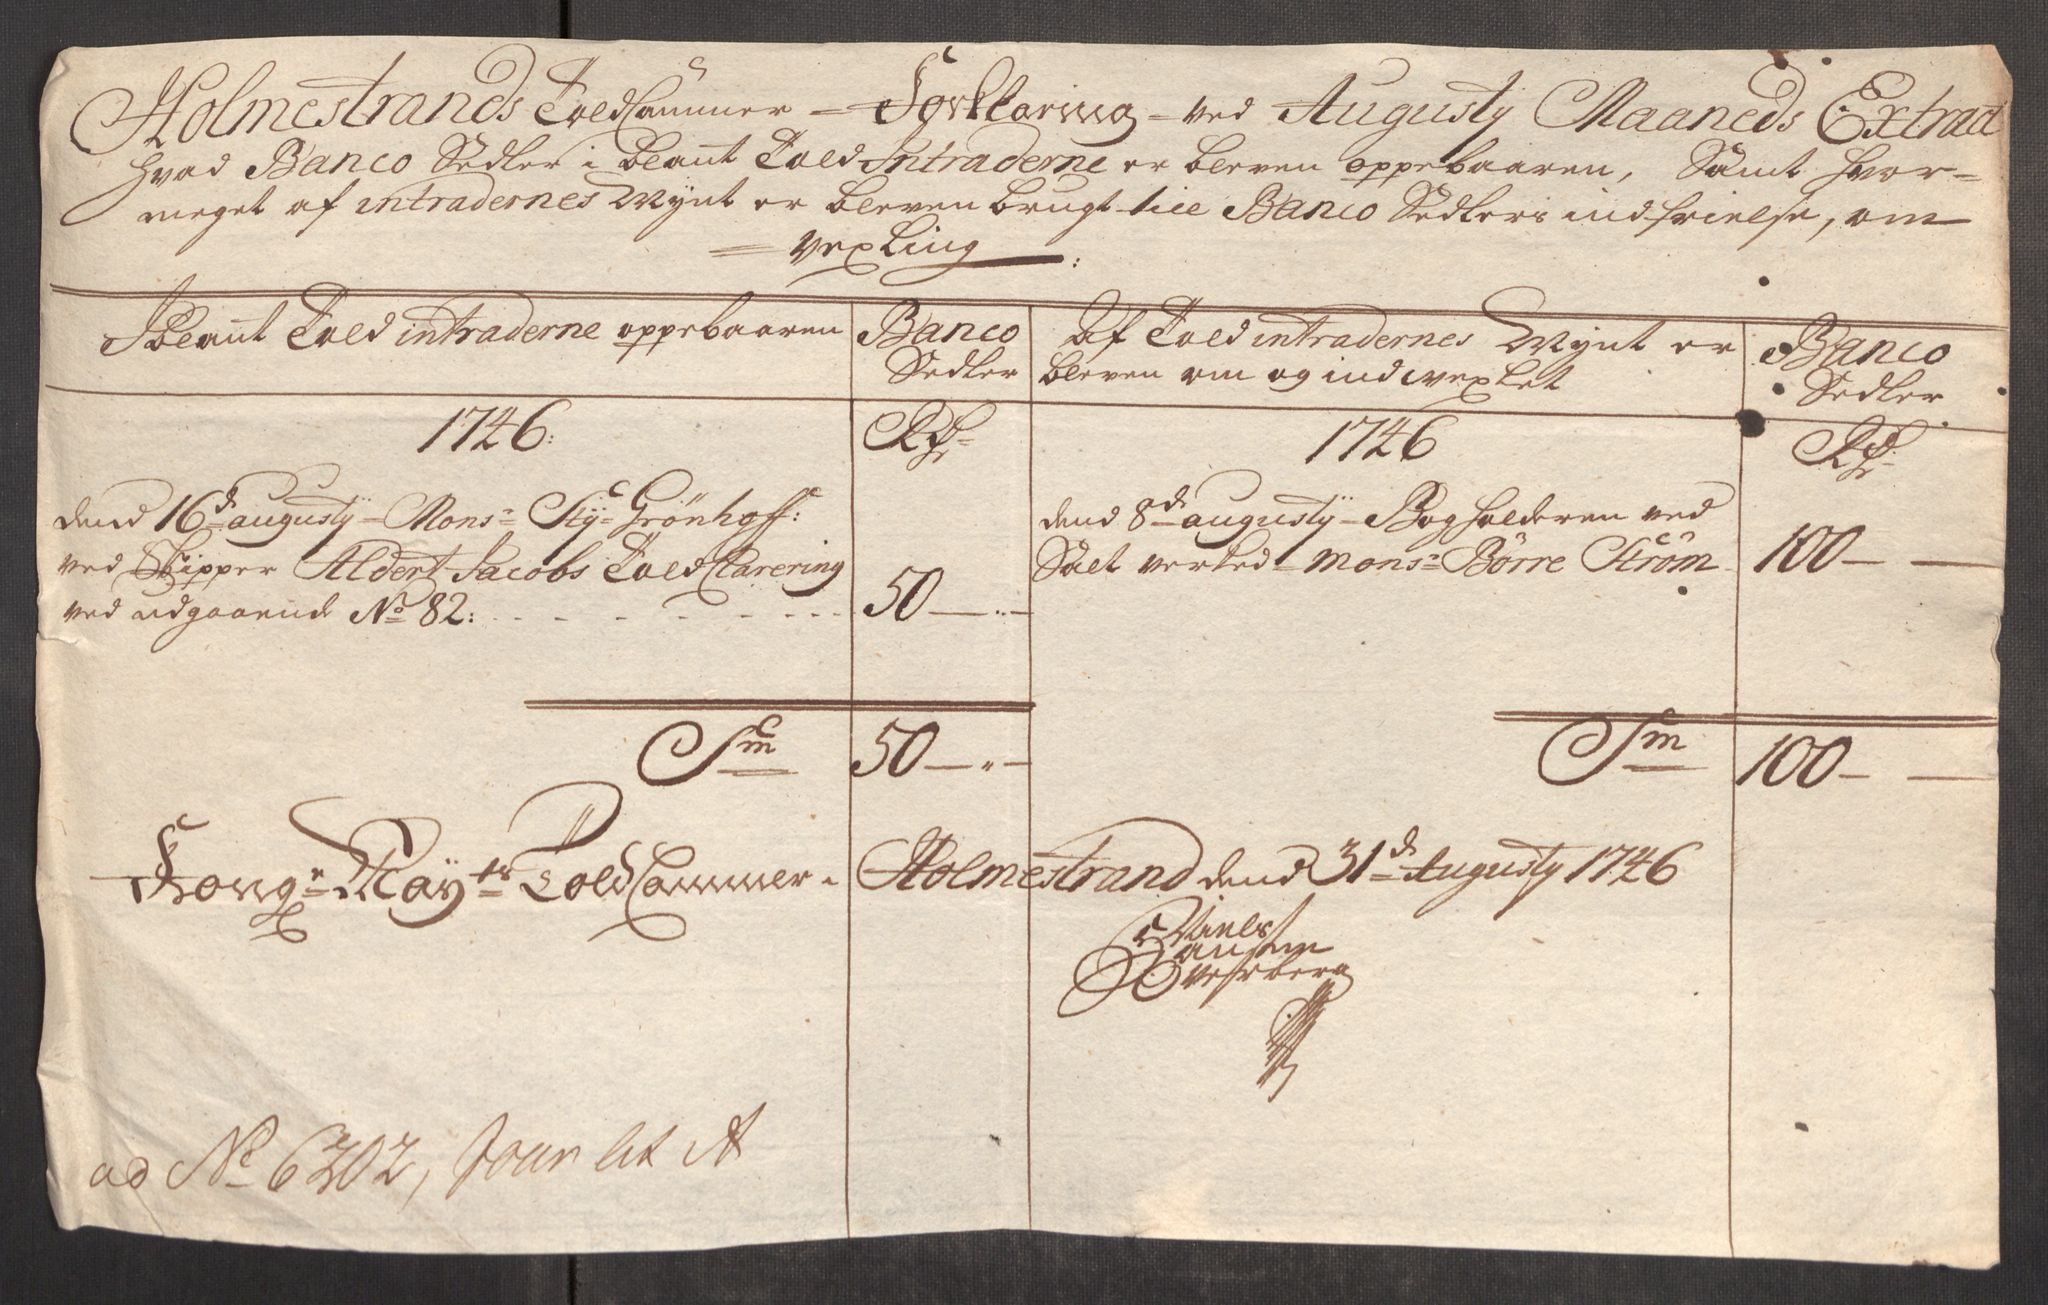 Holmestrands Told Cammer - Forklaring - ved Augusty Maaneds Extract
hvad Banco Sedler i blant Told Intraderne er bleven oppebaaren, Samt hvor-
meget af intradernes Mynt er bleven brugt till Banco Sedlers indfrielse, om
vexling :
I blant Told intraderne oppebaaren
Banco
Sedler
Af Told intradernes Mynt er
bleven om og ind vexlet
Banco
Sedler
1746:
Rd
dend 16de augusty - Mons: Grönhoff:
ved Skipper Aldert Jacobs Told Clarering
ved udgaaende No 82:
50 -
1746
Rd
dend 8de augusty - Bogholderen ved
Salt verked - Mons: Börre Ström
100 -
Sm
50 -
Sm
100 -
Kongr Mayts Told Cammer - Holmestrand dend 31d Augusty 1746
Niels
Hansen
Oversberg
ad No 6202, Jour lit A